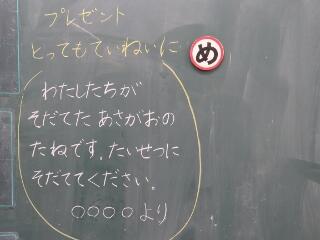 プレゼント
とってもていねいに
め
わたしたちが
そだてた あさがおの
たねです。たいせつに
そだててください。
○○○○より